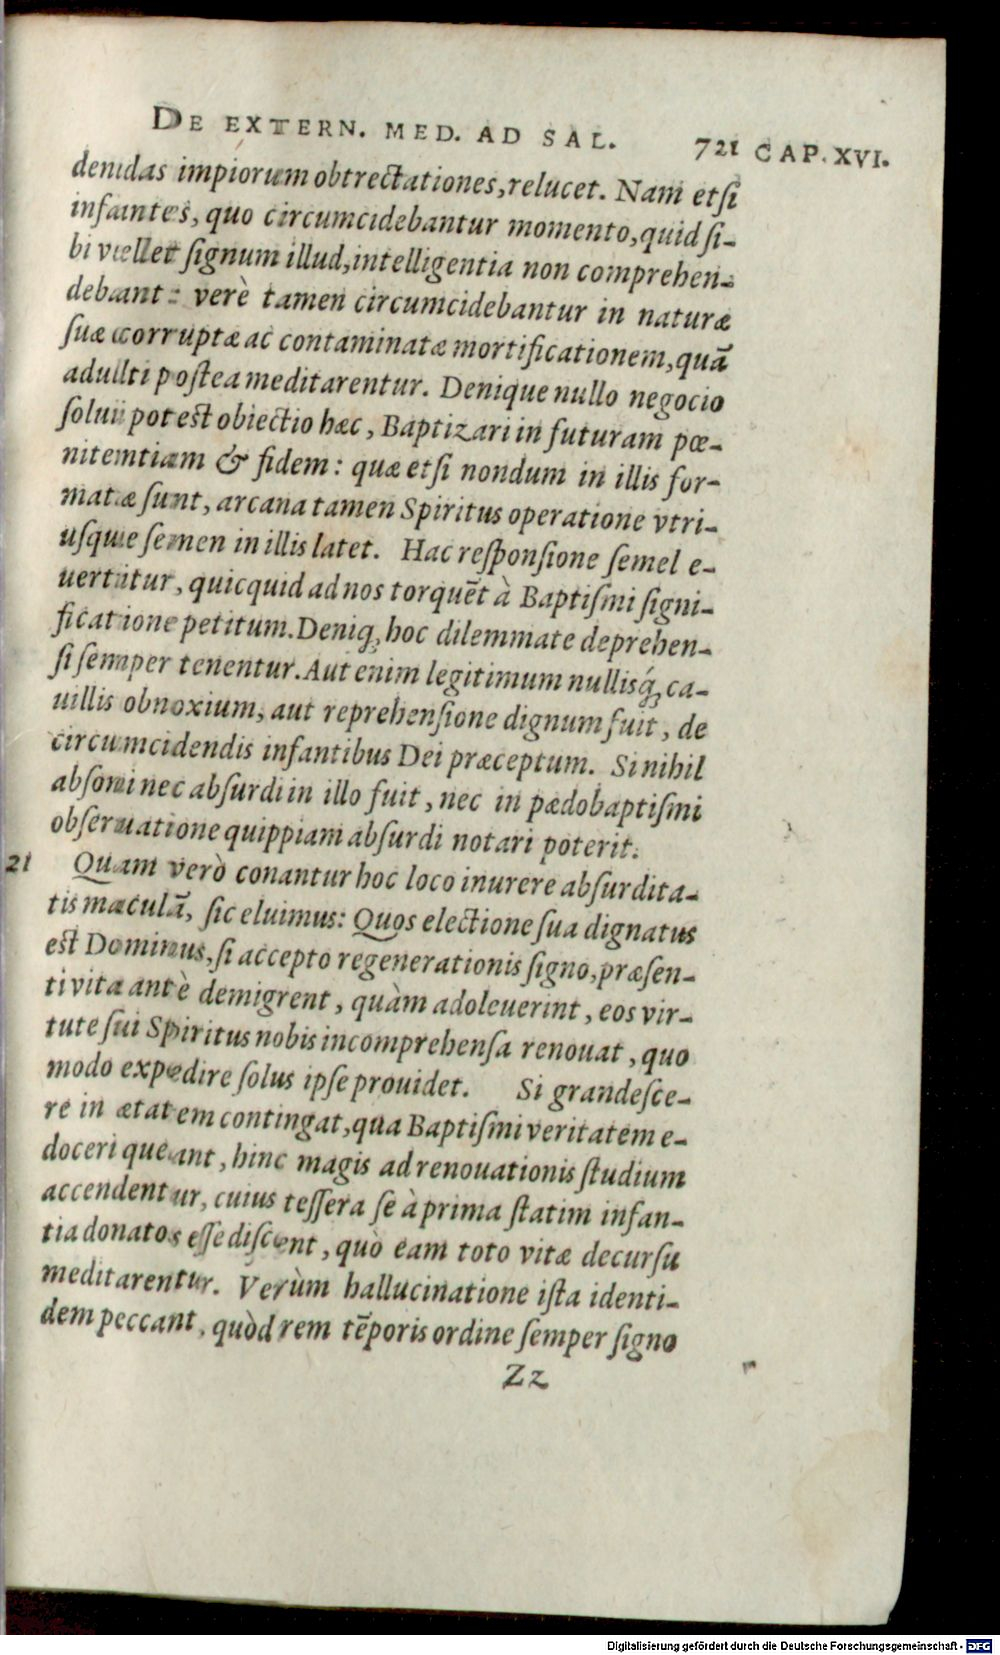 DE EXTERN. MED. AD SAL. 721 CAP. XVI.
dendas impiorum obtrectationes, relucet. Nam etſi
infantes, quo circumcidebantur momento, quid ſi-
bi vellet ſignum illud, intelligentia non comprehen-
debant: verè tamen circumcidebantur in naturæ
ſuæ corruptæ ac contaminatæ mortificationem, quā
adulti poſtea meditarentur. Denique nullo negocio
ſolui poteſt obiectio hæc, Baptizari in futuram pœ-
nitentiam & fidem: quæ etſi nondum in illis for-
matæ ſunt, arcana tamen Spiritus operatione vtri-
uſque ſemen in illis latet. Hac reſponſione ſemel e-
uertitur, quicquid ad nos torquēt à Baptiſmi ſigni-
ficatione petitum. Deniq; hoc dilemmate deprehen-
ſi ſemper tenentur. Aut enim legitimum nullisq́; ca-
uillis obnoxium, aut reprehenſione dignum fuit, de
circumcidendis infantibus Dei præceptum. Si nihil
abſoni nec abſurdi in illo fuit, nec in pædobaptiſmi
obſeruatione quippiam abſurdi notari poterit.
21 Quam verò conantur hoc loco inurere abſurdita-
tis maculā, ſic eluimus: Quos electione ſua dignatus
eſt Dominus, ſi accepto regenerationis ſigno, præſen-
ti vita antè demigrent, quàm adoleuerint, eos vir-
tute ſui Spiritus nobis incomprehenſa renouat, quo
modo expedire ſolus ipſe prouidet. Si grandeſce-
re in ætatem contingat, qua Baptiſmi veritatem e-
doceri queant, hinc magis ad renouationis ſtudium
accendentur, cuius teſſera ſe à prima ſtatim infan-
tia donatos eſſe diſcent, quò eam toto vitæ decurſu
meditarentur. Verùm hallucinatione iſta identi-
dem peccant, quòd rem tēporis ordine ſemper ſigno
Zz
Digitalisierung gefördert durch die Deutsche Forschungsgemeinschaft - DFG